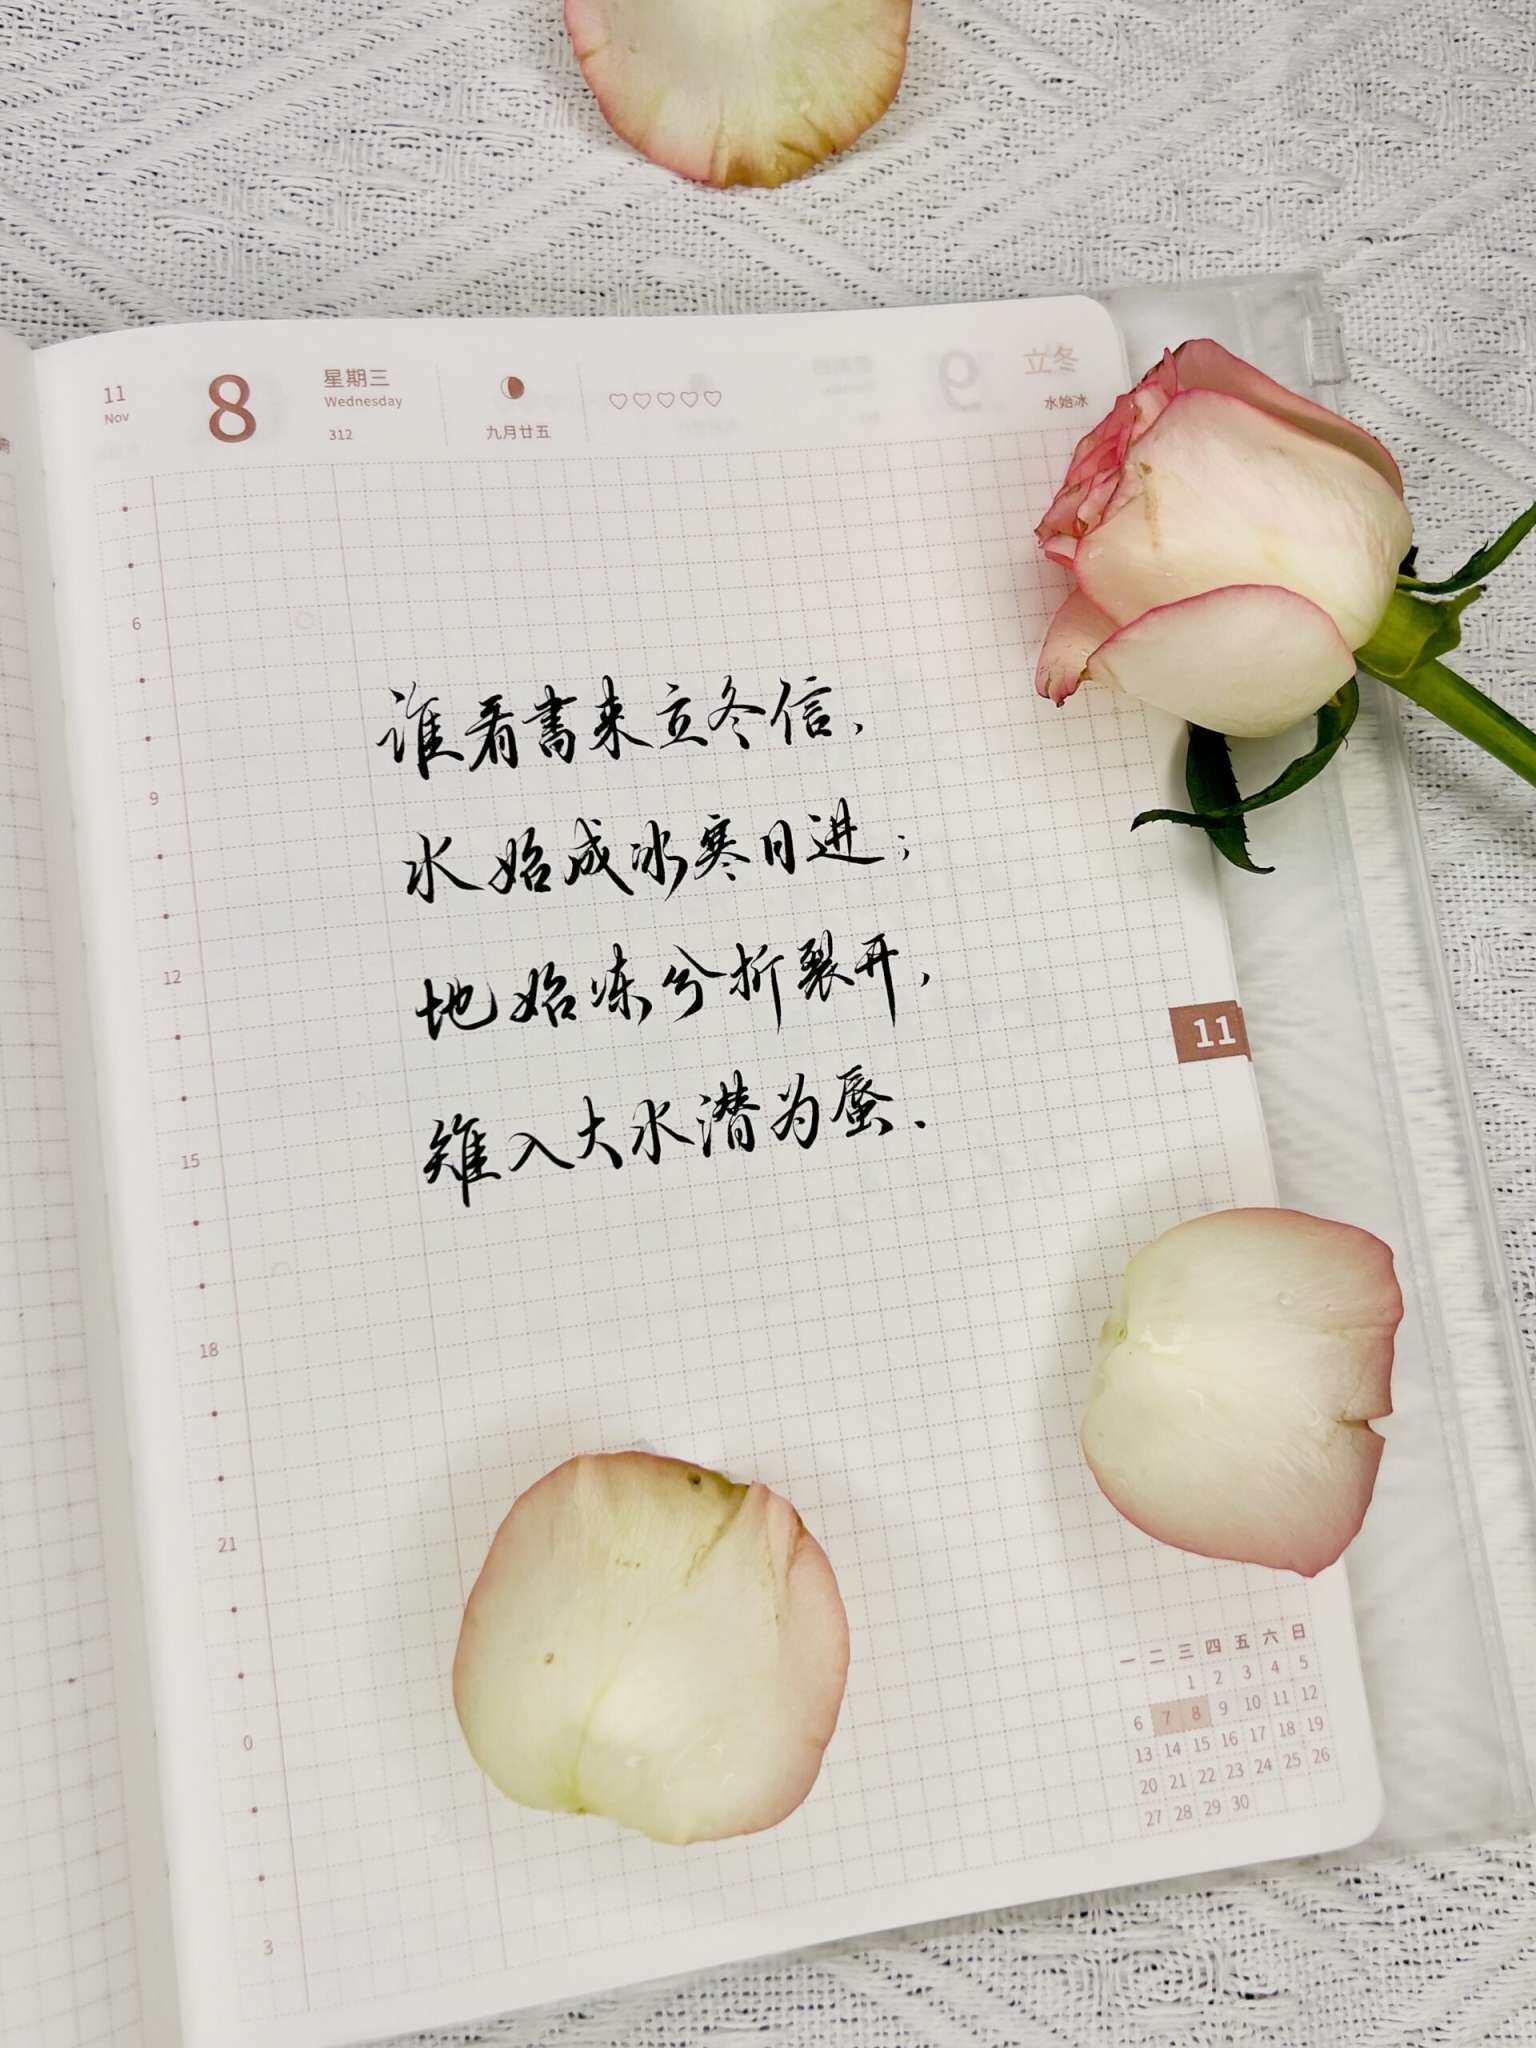 11
Nov
8
星期三
Wednesday
312
九月廿五
立冬
水始冰
谁看书来立冬信，
水始成冰寒日进；
地始冻兮折裂开，
雉入大水潜为蜃．
6
9
12
15
18
21
0
3
11
一 二 三 四 五 六 日
1 2 3 4 5
6 7 8 9 10 11 12
13 14 15 16 17 18 19
20 21 22 23 24 25 26
27 28 29 30